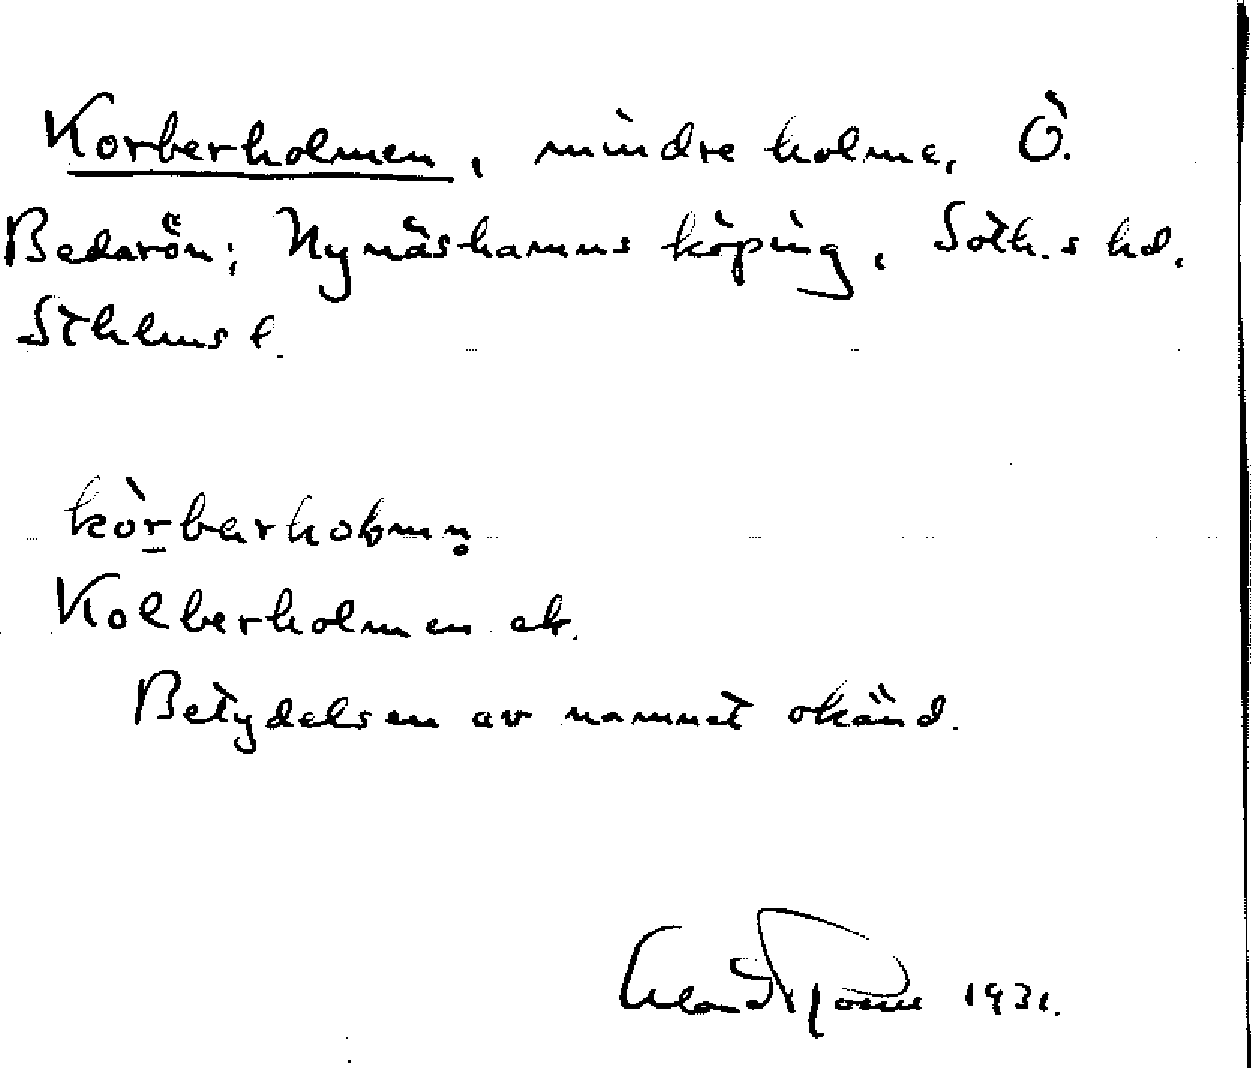 Korberholmen, mindre holme, Ö.
Bedarön; Nynäshamns köping, Soth.s hd.
Sthlms l.
kòrbarholmn̥
Kolberholmen ek.
Betydelsen av namnet okänd.
1931.